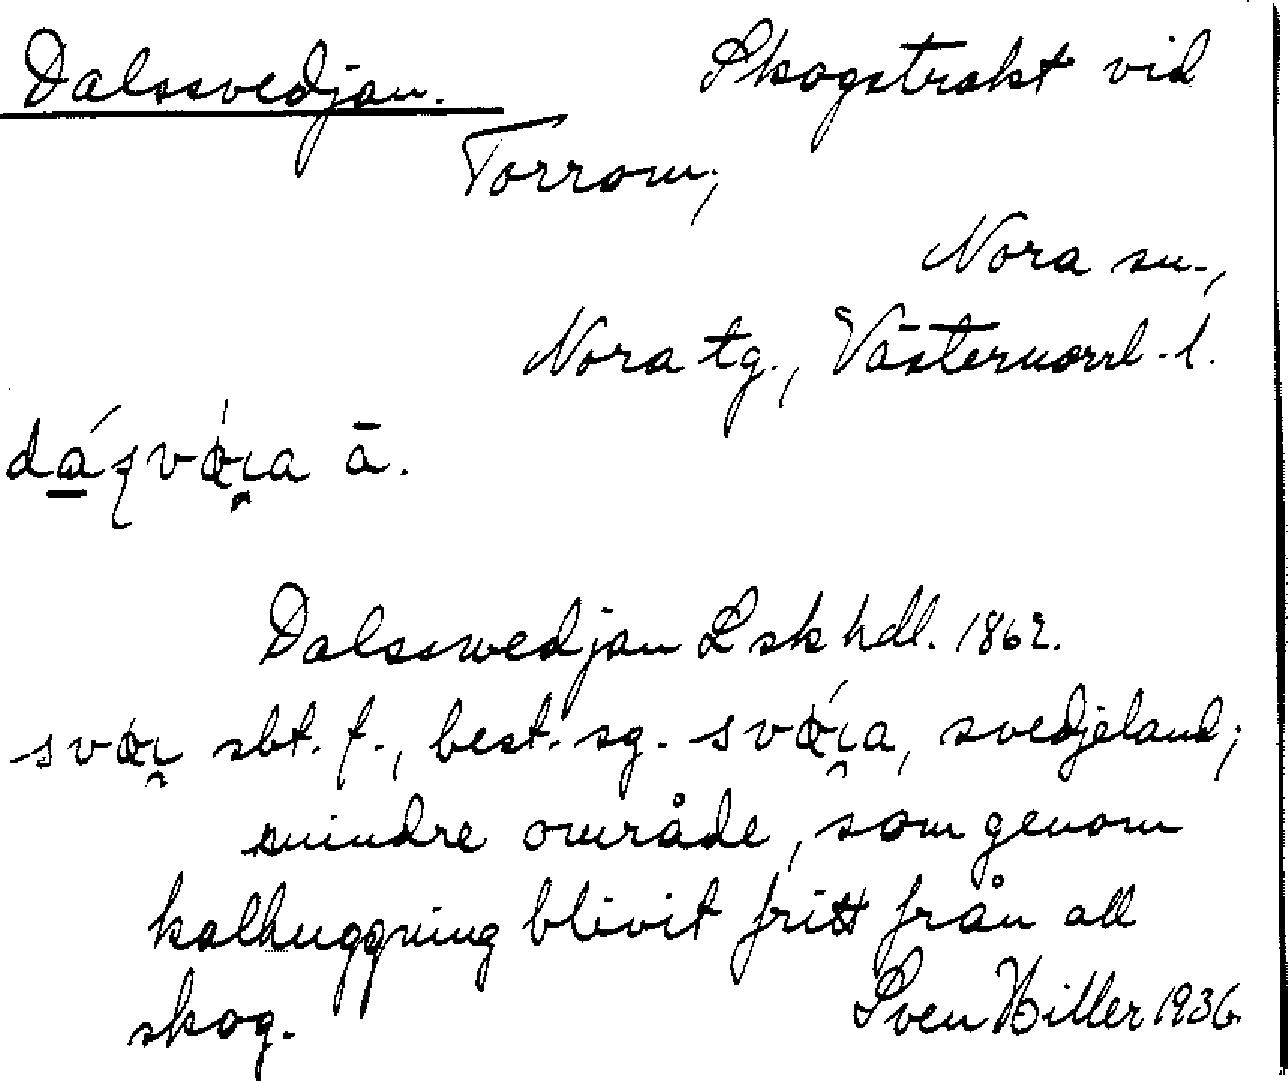 Dalssvedjan. Skogstrakt vid
Torrom,
Nora sn.,
Nora tg., Västernorrl. l.
ā.
Dalsswedjan Lskhdl. 1862.
sbt. f., best. sg. svedjeland;
mindre område, som genom
kalhuggning blivit fritt från all
skog. Sven Hiller 1936